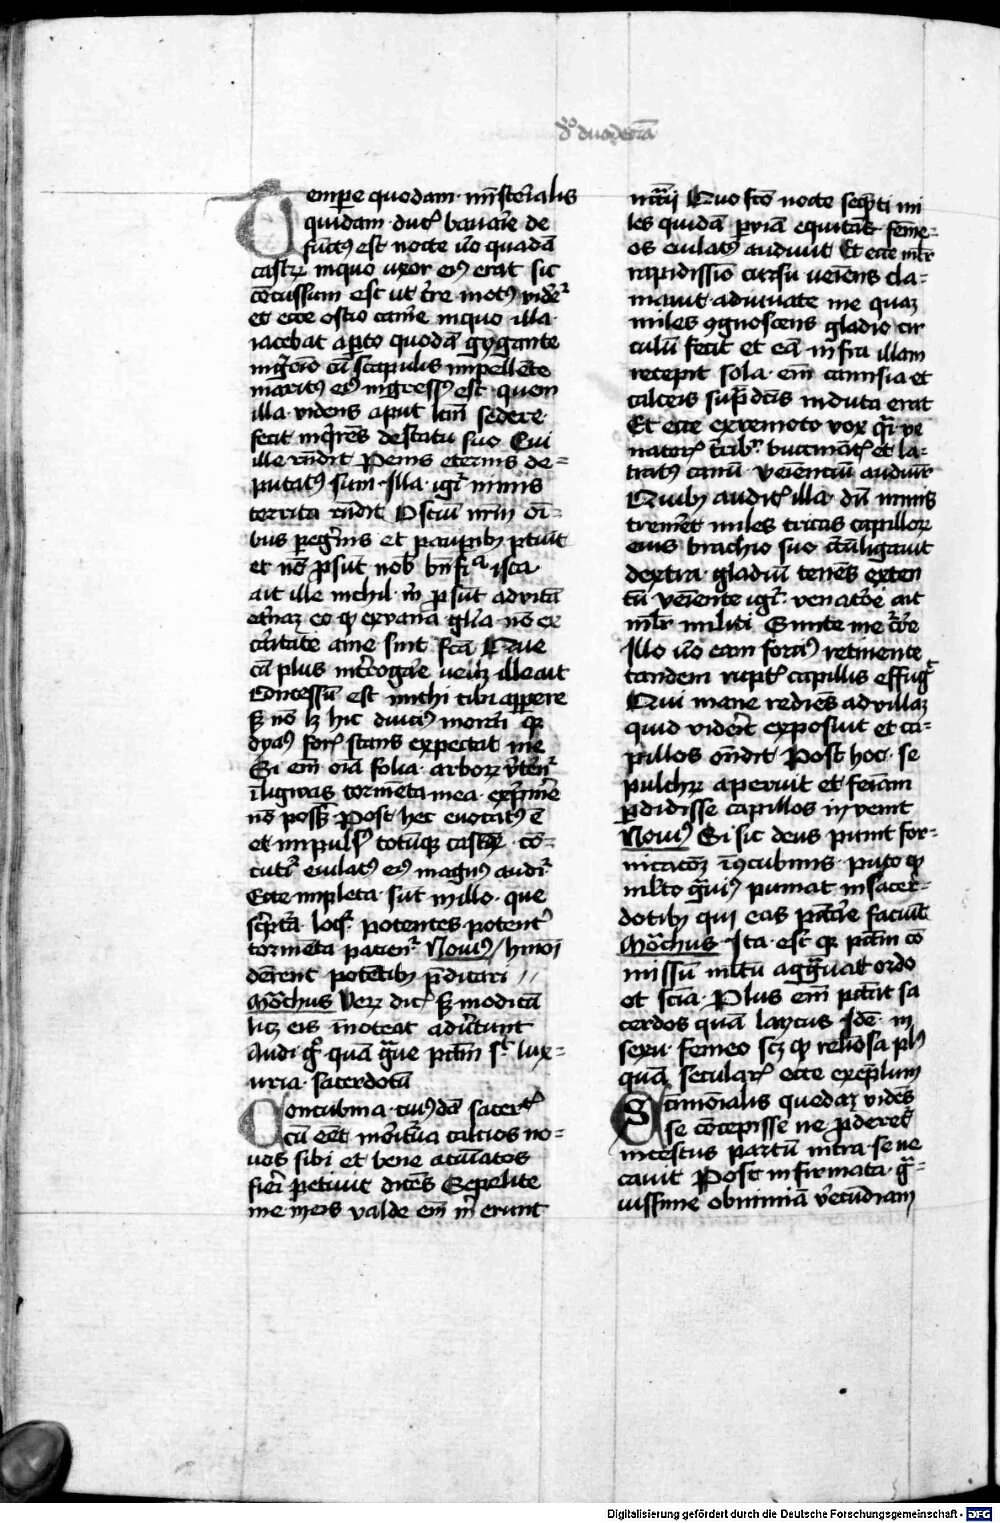 do duodecia
Tempore quodam ministerialis
quidam ducis bavarie de
functus est nocte vero quadam
castrum in quo uxor eius erat sic
concussum est ut terre motus videretur
et ecce ostio camere in quo illa
iacebat aperto quodam gygante
nigerrimo cum scapulis impellente
maritus eius ingressus est quem
illa videns aput lectum sedere
fecit inquirens de statu suo Cui
ille respondit Penis eternis de=
putatus sum Illa igitur nimis
territa respondit Ostium nostrum omni=
bus peregrinis et pauperibus patuit
et non prosunt nobis beneficia ista
ait ille nichil michi prosunt ad vitam
eternam eo quod ex vana gloria non ex
caritate a me sint facta Que
cum plus interrogare vellet ille ait
Concessum est michi tibi apparere
sed non licet hic diutius morari quia
dyabolus foris stans expectat me
Si enim omnia folia arborum verterentur
in ligwas tormenta mea exprimere
non possent Post hec evocatus est
et impulsus totumque castrum con=
cutitur eiulatus eius magnus auditur
Ecce impleta sunt in illo que
scripta loquitur potentes potenter
tormenta patientur Novius huiusmodi
deberent potentibus predicari
Monchus Verum dicis sed modicum
licet eis innoteat advertunt
Audi ergo quam grave peccatum sit lux=
uria sacerdotum
Concubina cuiusdam sacerdotis
cum esset moritura calcios no=
vos sibi et bene acuminatos
fieri petivit dicens Sepelite
me in eis valde enim michi erunt
necessarii Quo facto nocte sequenti mi
les quidam per viam equitans femine=
os eiulatus audivit Et ecce mulier
rapidissimo cursu veniens cla=
mavit adiuvate me quam
miles cognoscens gladio cir
culum fecit et eam infra illam
recepit sola enim camisia et
calceis supradictis induta erat
Et ecce ex remoto vox quasi ve
natoris terribiliter buccinantis et la=
tratus canum venientium auditur
Quibus auditis illa dum nimis
tremeret miles tricas capillorum
eius brachio suo circumligavit
dextra gladium tenens exten
tum veniente igitur venatore ait
mulier militi Sinite me currere
Illo vero eam fortius retinente
tandem ruptis capillis effugit
Qui mane rediens ad villam
quid viderit exposuit et ca=
pillos ostendit Post hoc se
pulchrum aperuit et feminam
perdidisse capillos invenit
Novius Si sic deus punit for=
nicatores in concubinis puto quod
multo gravius puniat in sacer=
dotibus qui eas peccare faciunt
Monchus Ita est quia peccatum com
missum multum aggravat ordo
et scientia Plus enim peccat sa
cerdos quam laycus Idem in
sexu femineo scilicet quod religiosa plus
quam secularis ecce exemplum
Sanctimonialis quedam videns
se concepisse ne proderet
incestus partum intra se ne
cavit Post infirmata gra=
vissime ob nimiam verecundiam